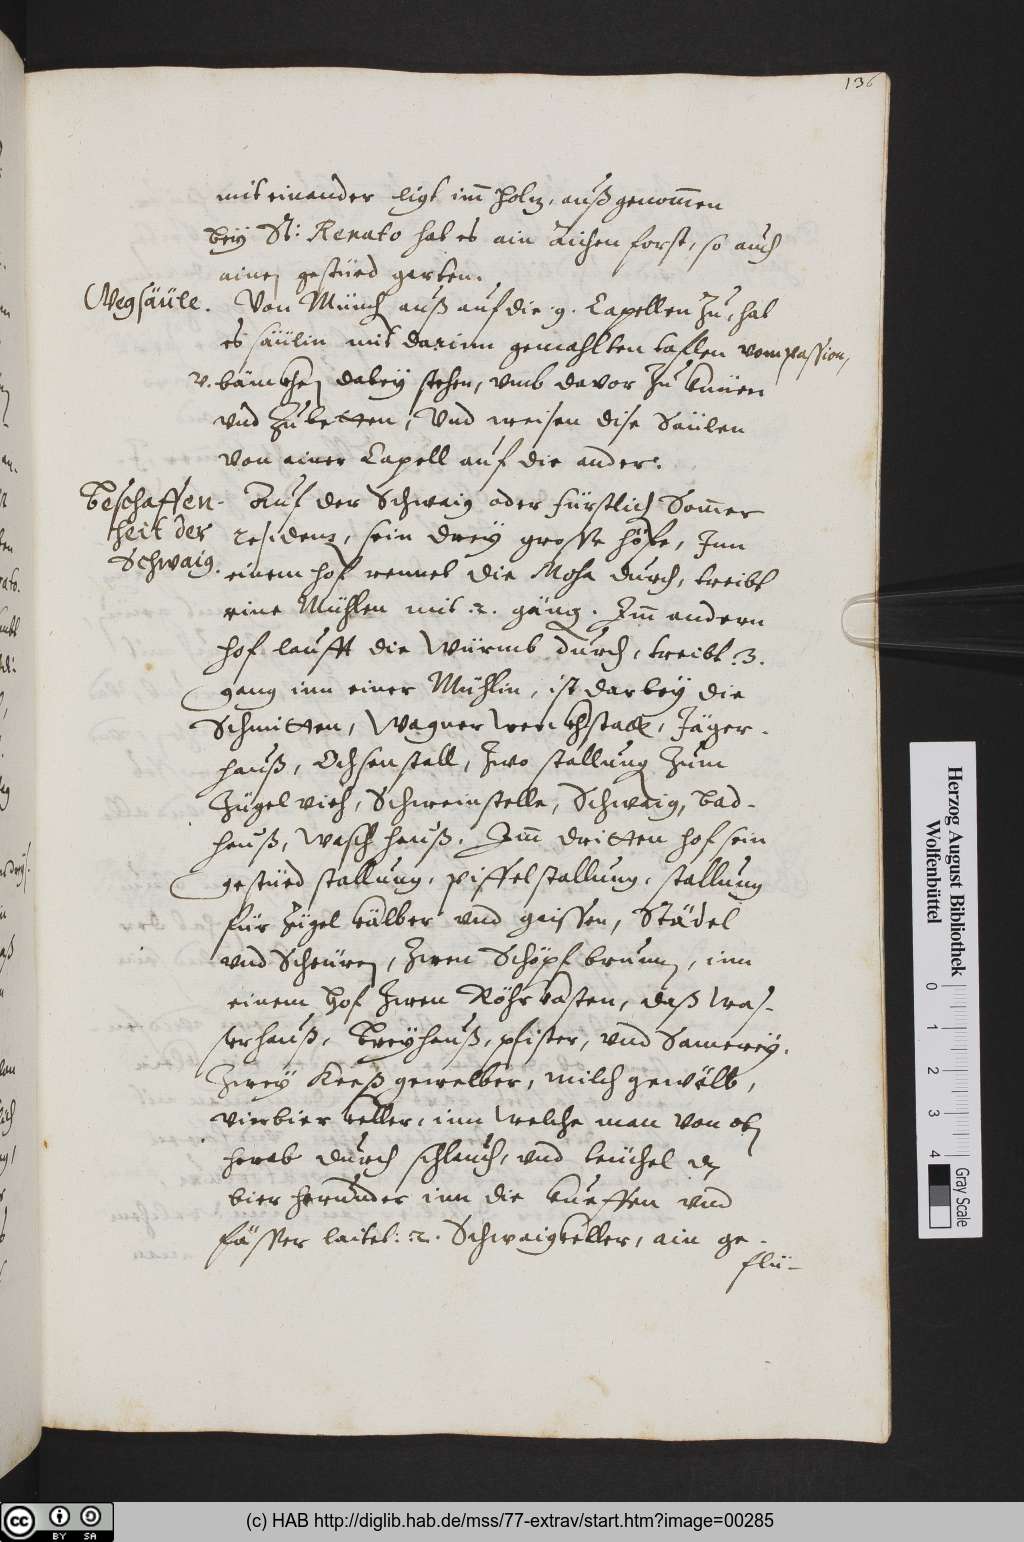 136
mit einander ligt im̄ holz, außgenom̄en
bey St: Renato hat es ain Aichen forst, so auch
ainen gestüed garten.
Wegsäüle.
Von Münch auß auf die .9. Capellen zu, hat
es säülin mit darinn gemahlten taflen vom passion,
v. bäncklen dabey stehen, vmb davor zu knüen
vnd zu betten, Vnd weisen dise Säülen
von ainer Capell auf die ander.
Beschaffen-
heit der
Schwaig.
Auf der Schwaig oder fürstlich Som̄er
residenz, sein drey grosse höfe, Inn
einem hof rennet die Mosa durch, treibt
eine Mühlen mit .2. gäng. Im̄ andern
hof laufft die Würmb durch, treibt .3.
gang inn einer Mühlin, ist darbey die
Schmitten, Wagner Werckhstatt, Jäger-
hauß, Ochsenstall, zwo stallung zum
Zügel vieh, Schweinstelle, Schwaig, Bad-
hauß, Waschhauß. Im̄ dritten hof sein
gestüed stallung, piffelstallung, stallung
für Zügel kälber vnd gaissen, Städel
vnd Scheüren, zwen Schöpfbrunnen, inn
einem hof zwen Röhrkasten, daß Was-
serhauß, Breyhauß, pfister, vnd
Zwey Keeßgewelber, milch gewölb,
vier bier keller, inn welche man von oben
herab durch schlauch, vnd teüchel dz
bier herunder inn die kueffen vnd
fässer laitet: 2. Schwaigkeller, ain ge-
flü-
Herzog August Bibliothek
Wolfenbüttel
0 1 2 3 4
Gray Scale
cc BY SA
(c) HAB http://diglib.hab.de/mss/77-extrav/start.htm?image=00285